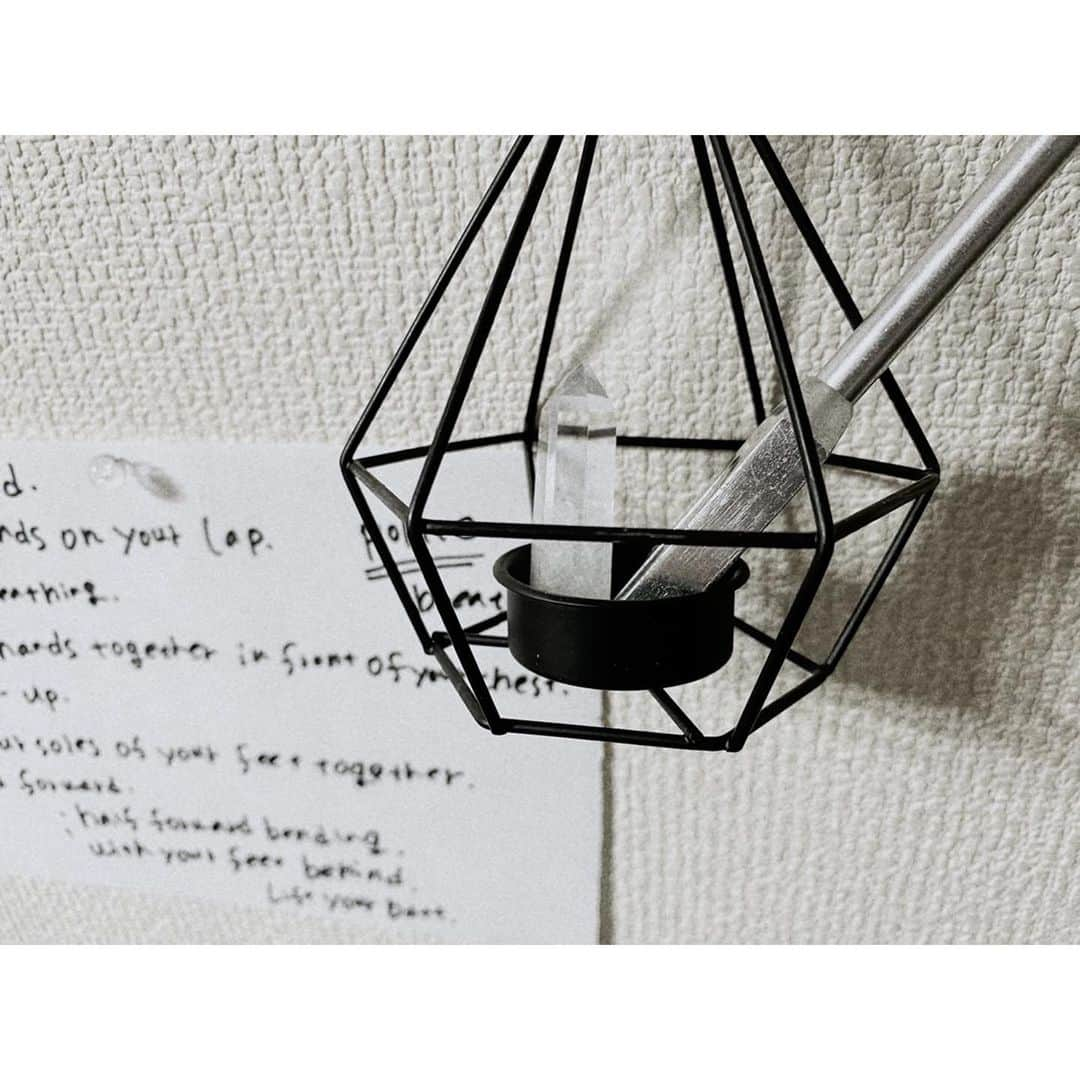 d.
nds on your lap.
eathing.
hands together in front of your chest.
- up.
ur soles of your feet together.
forward.
half forward bending.
with your feet behind.